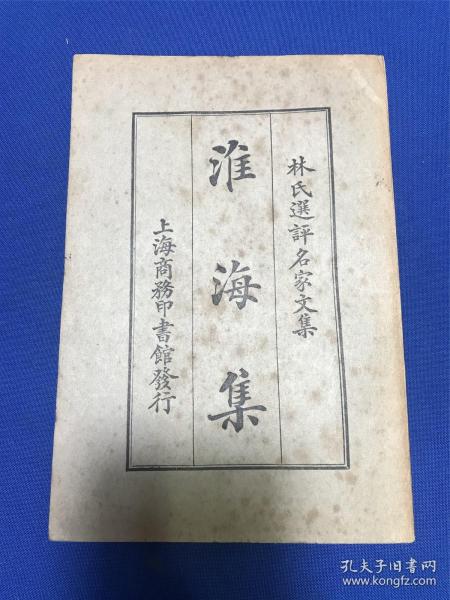 林氏選評名家文集
淮海集
上海商務印書館發行
孔夫子旧书网
www.kongfz.com